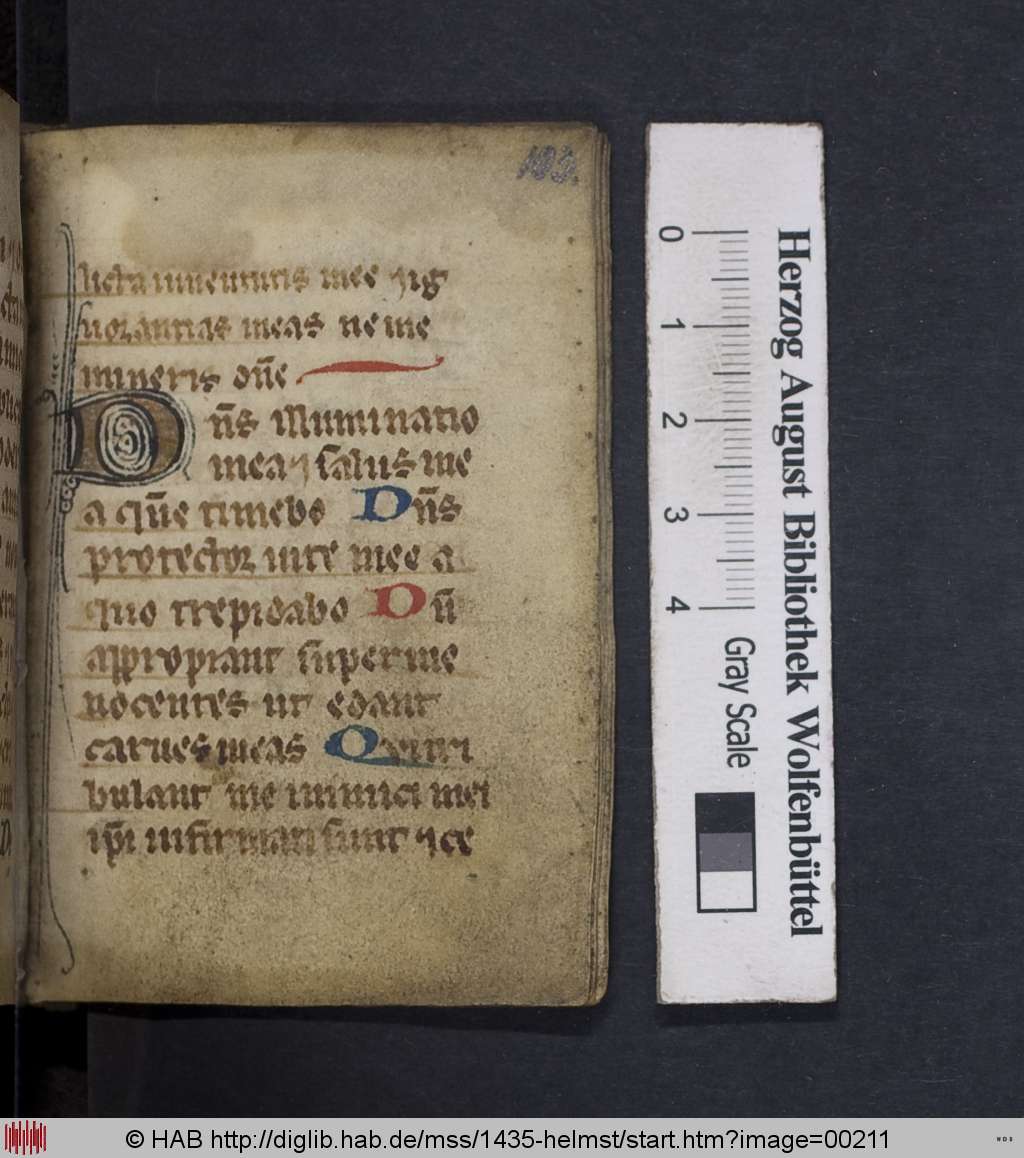 103.
licta iuuentutis mee ⁊ ig
norantias meas ne me
mineris dn̄e
Dn̄s illuminatio
mea ⁊ salus me
a quē timebo Dn̄s
protector uite mee a
quo trepidabo Dū
appropiant sup̄ me
nocentes ut edant
carnes meas Qui tri
bulant me inimici mei
ip̄i infirmati sunt ⁊ ce
0 1 2 3 4
Gray Scale
Herzog August Bibliothek Wolfenbüttel
© HAB http://diglib.hab.de/mss/1435-helmst/start.htm?image=00211